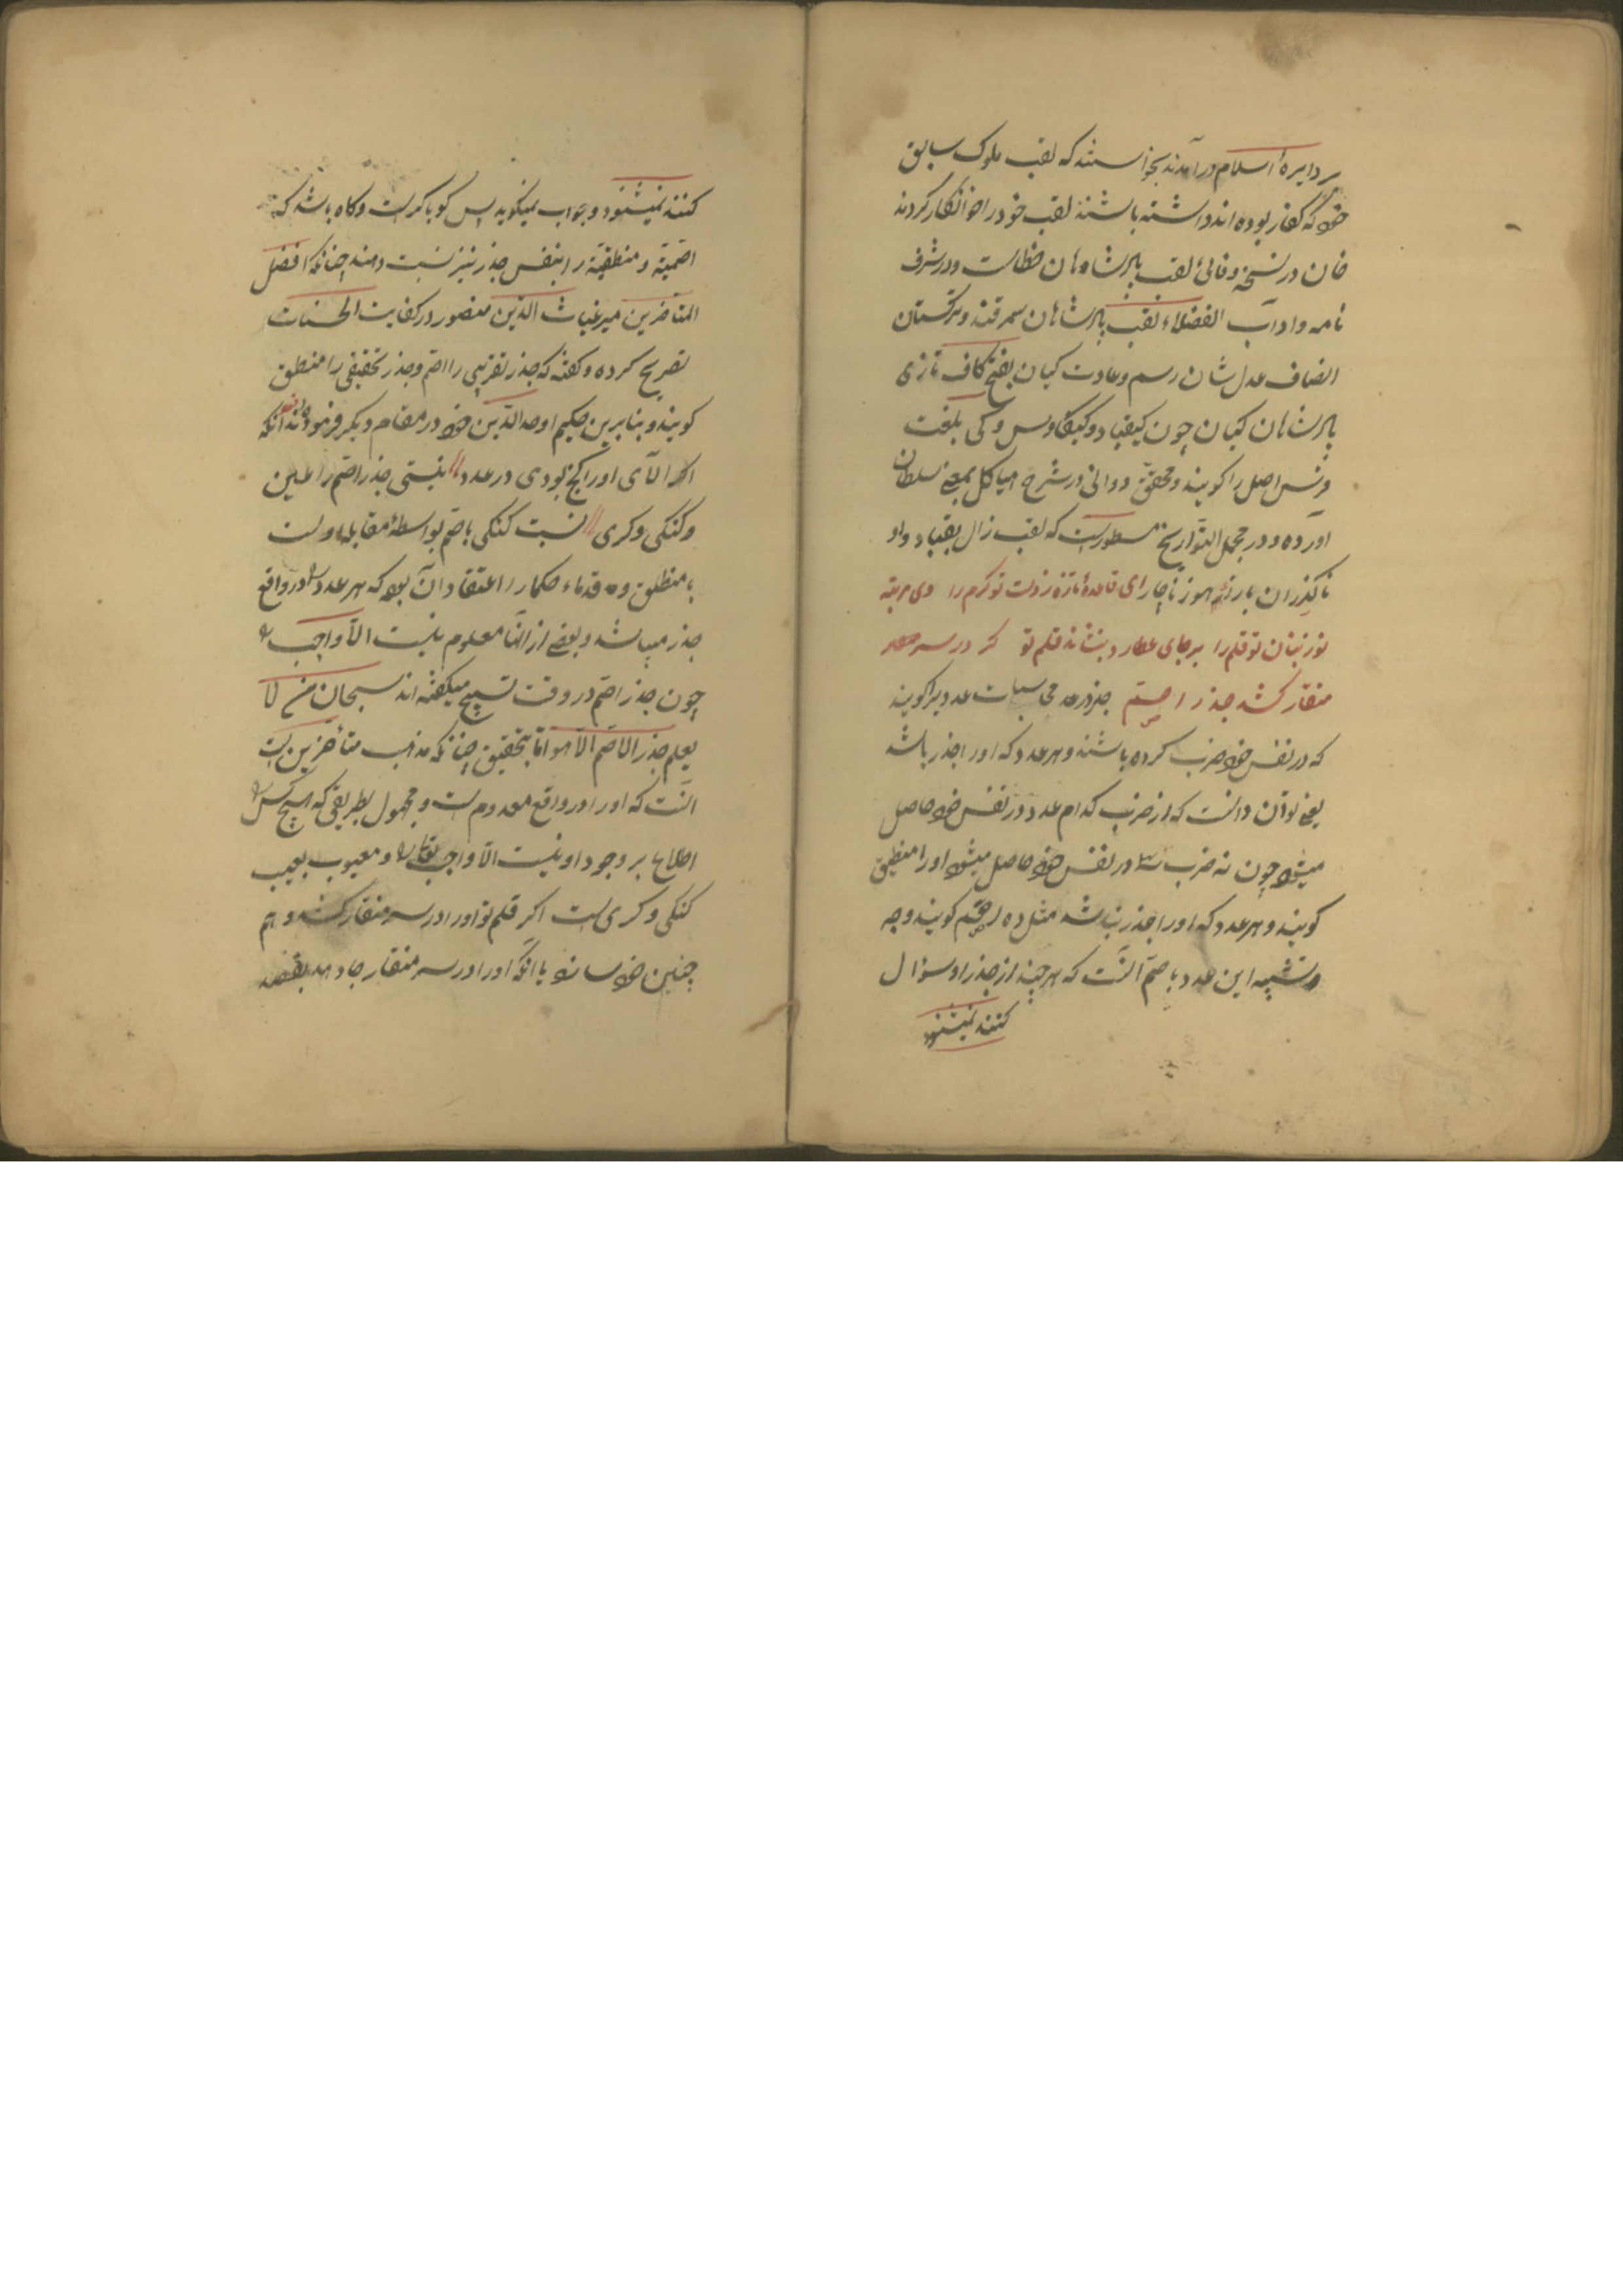 بر دایره اسلام درآمدند نخواستند که لقب ملوک سابق
خود که کفار بوده‌اند داشته باشند لقب خود را خوانکار کردند
خان در نسخه وفائی لقب پادشاهان خطاست و در شرف
نامه و اداب الفضلاء لقب پادشاهان سمرقند و ترکستان
انصاف عدل شان رسم و عادت کیان بفتح کاف تازی
پادشاهان کیان چون کیقباد و کیکاوس و کی بلغت
فرس اصل را کویند و محقق دوانی در شرح هیاکل بمعنی سلطان
آورده و در مجمل التواریخ مسطورست که لقب زال بقباد داد
ناکذران هنوز ناچار ای قاعدهٔ تازه ز دست تو کرم را وی مرتبه
نوز بنان تو قلم را بر جای عطارد بنشاند قلم تو کر در سر
منقار کشد جذر اصم را جذر در محاسبات عددیرا کویند
که در نفس خود ضرب کرده باشند و هر عدد که او را جذر باشد
یعنی توان دانست که از ضرب کدام عدد در نفس خود حاصل
میشود چون نه ضرب سه در نفس خود حاصل میشود او را منطق
کویند و هر عدد که او را جذر نباشد مثل ده اصم کویند وجه
تشبیه این عدد باصم آنست که هر چند از جذر او سؤال
کنند نمیشنود
کنند نمیشنود و جواب نمیکوید پس کویا کرست و کاه باشد که
اصمیة و منطقیة را بنفس جذر نیز نسبت دهند چنانکه افضل
المتأخرین میر غیاث الدین منصور در کفایت الحساب
تصریح کرده و کفته که جذر تقریبی را اصم و جذر تحقیقی را منطق
کویند و بنابرین حکیم اوحد الدین خود در مقام دیکر فرموده آنکه
اکر الآی او را کنج بودی در عدد نیستی جذر اصم را عین
و کنکی و کری نسبت کنکی باصم بواسطهٔ مقابله اوست
بمنطق و قدماء حکما را اعتقاد آن بود که هر عدد را در واقع
جذر میباشد و بعضی از آنها معلوم نیست الا واجب را
چون جذر اصم در وقت تسبیح میکفته‌اند سبحان من لا
یعلم جذر الاصم الا هو اما بتحقیق چنانکه مذهب متأخرین است
آنست که او را در واقع معدوم است و مجهول بطریقی که هیچ کس را
اطلاع بر وجود او نیست الا واجب تعالی را و معیوب بعیب
کنکی و کری است اکر قلم تو او را در سر منقار کشد و هم
چنین خود سازد با آنکه او را در سر منقار جا دهد